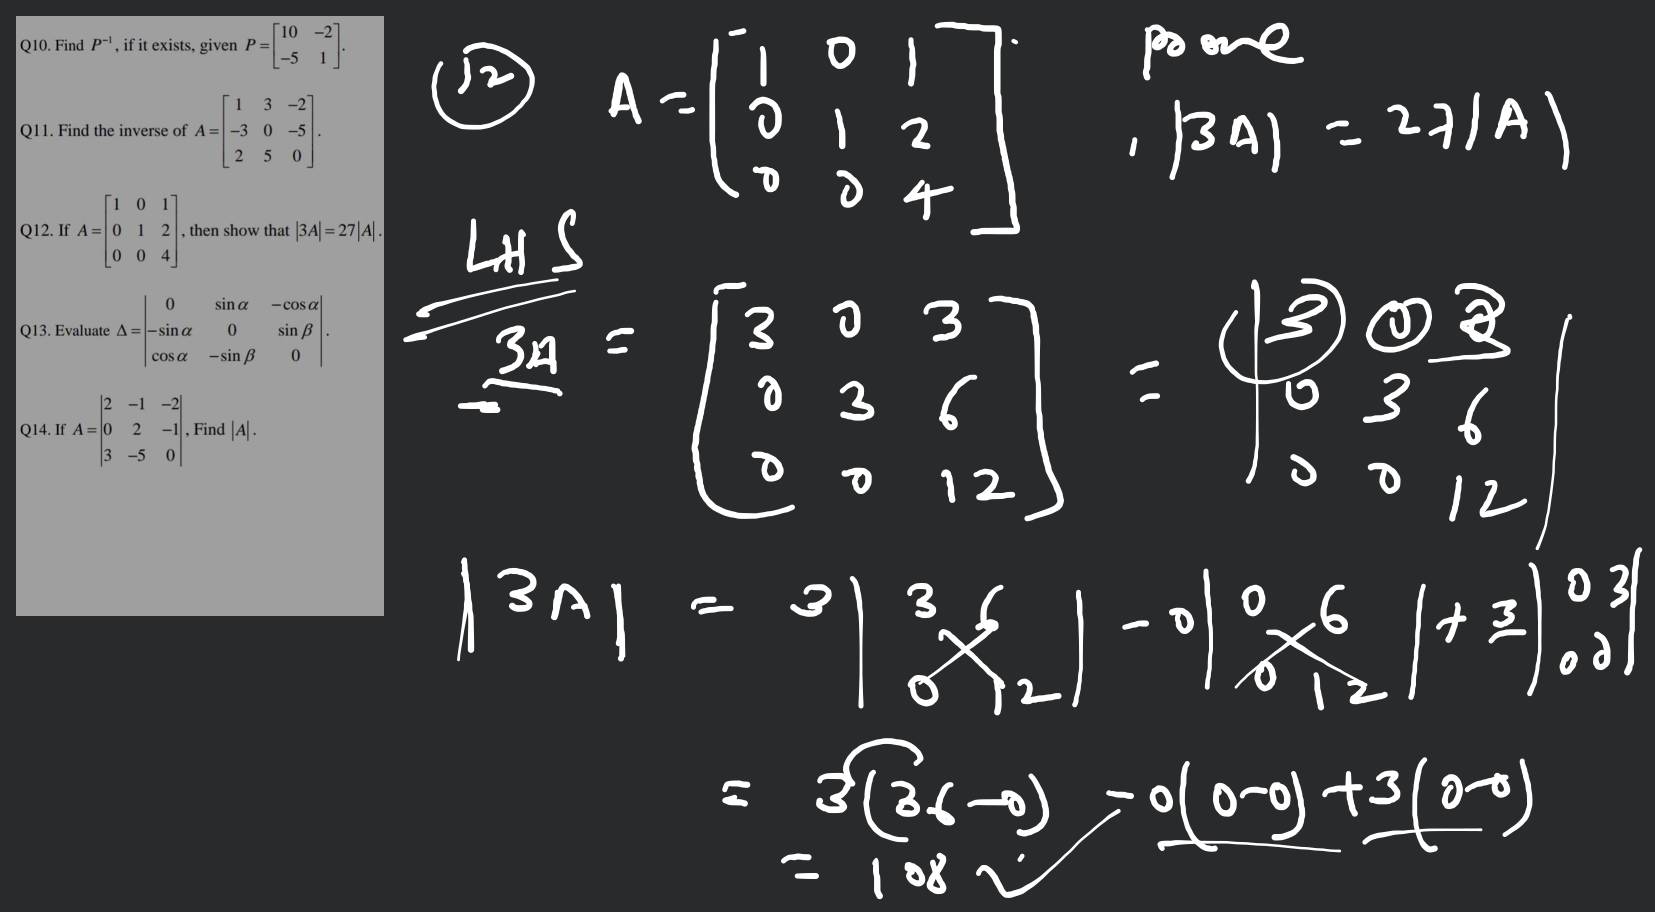 Q10. Find P⁻¹, if it exists, given P = [10 −2
−5 1].
Q11. Find the inverse of A = [1 3 −2
−3 0 −5
2 5 0].
Q12. If A = [1 0 1
0 1 2
0 0 4], then show that |3A| = 27|A|.
Q13. Evaluate Δ = |0 sin α −cos α
−sin α 0 sin β
cos α −sin β 0|.
Q14. If A = |2 −1 −2
0 2 −1
3 −5 0|, Find |A|.
(12) A = [1 0 1
0 1 2
0 0 4]
prove
, |3A| = 27|A|
LHS
3A = [3 0 3
0 3 6
0 0 12]
= |3 0 3
0 3 6
0 0 12|
|3A| = 3 |3 6
0 12| − 0 |0 6
0 12| + 3 |0 3
0 0|
= 3(36−0) − 0(0−0) + 3(0−0)
= 108 ✓